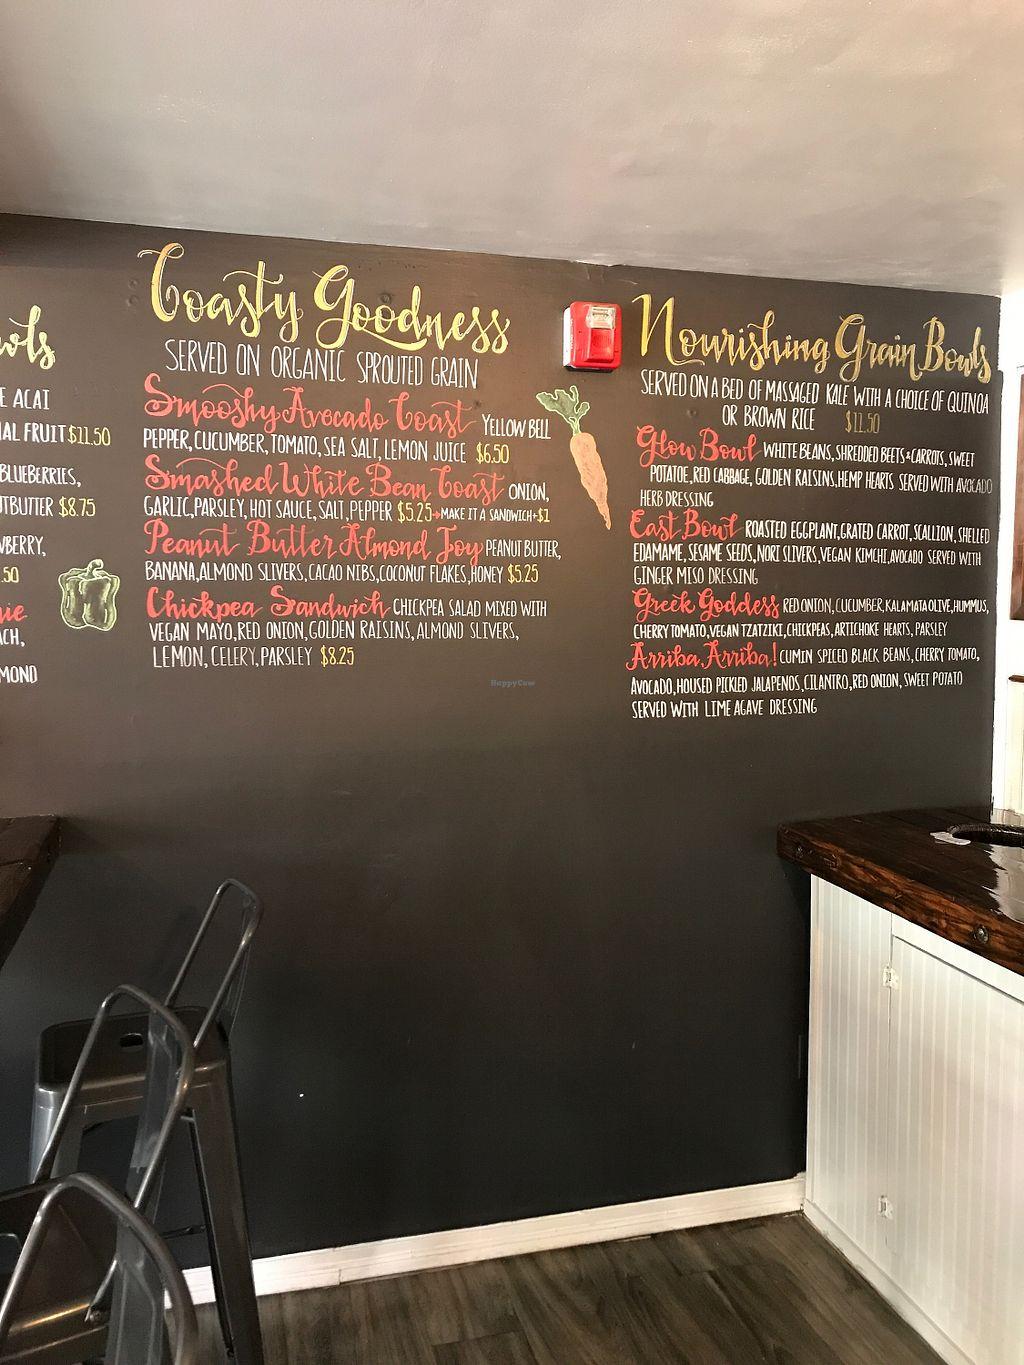 owls
E ACAI
NAL FRUIT $11.50
BLUEBERRIES,
UTBUTTER $8.75
WBERRY,
.50
nie
ACH,
MOND
Toasty Goodness
SERVED ON ORGANIC SPROUTED GRAIN
Smooshy Avocado Toast YELLOW BELL
PEPPER, CUCUMBER, TOMATO, SEA SALT, LEMON JUICE $6.50
Smashed White Bean Toast ONION,
GARLIC, PARSLEY, HOT SAUCE, SALT, PEPPER $5.25 → MAKE IT A SANDWICH +$1
Peanut Butter Almond Joy PEANUT BUTTER,
BANANA, ALMOND SLIVERS, CACAO NIBS, COCONUT FLAKES, HONEY $5.25
Chickpea Sandwich CHICKPEA SALAD MIXED WITH
VEGAN MAYO, RED ONION, GOLDEN RAISINS, ALMOND SLIVERS,
LEMON, CELERY, PARSLEY $8.25
HappyCow
Nourishing Grain Bowls
SERVED ON A BED OF MASSAGED KALE WITH A CHOICE OF QUINOA
OR BROWN RICE $11.50
Glow Bowl WHITE BEANS, SHREDDED BEETS & CARROTS, SWEET
POTATOE, RED CABBAGE, GOLDEN RAISINS, HEMP HEARTS SERVED WITH AVOCADO
HERB DRESSING
East Bowl ROASTED EGGPLANT, GRATED CARROT, SCALLION, SHELLED
EDAMAME, SESAME SEEDS, NORI SLIVERS, VEGAN KIMCHI, AVOCADO SERVED WITH
GINGER MISO DRESSING
Greek Goddess RED ONION, CUCUMBER, KALAMATA OLIVE, HUMMUS,
CHERRY TOMATO, VEGAN TZATZIKI, CHICKPEAS, ARTICHOKE HEARTS, PARSLEY
Arriba, Arriba! CUMIN SPICED BLACK BEANS, CHERRY TOMATO,
AVOCADO, HOUSED PICKLED JALAPENOS, CILANTRO, RED ONION, SWEET POTATO
SERVED WITH LIME AGAVE DRESSING